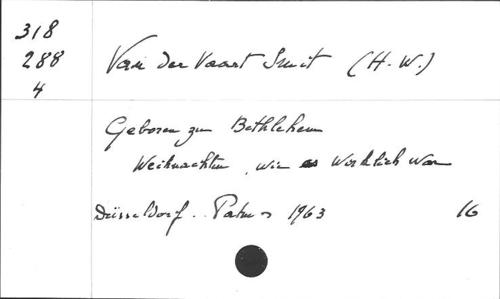 318
288
4
Van der Vaart Smit (H. W.)
Geboren zu Bethlehem
Weihnachten, wie es wirklich war
Düsseldorf. Patmos 1963 16